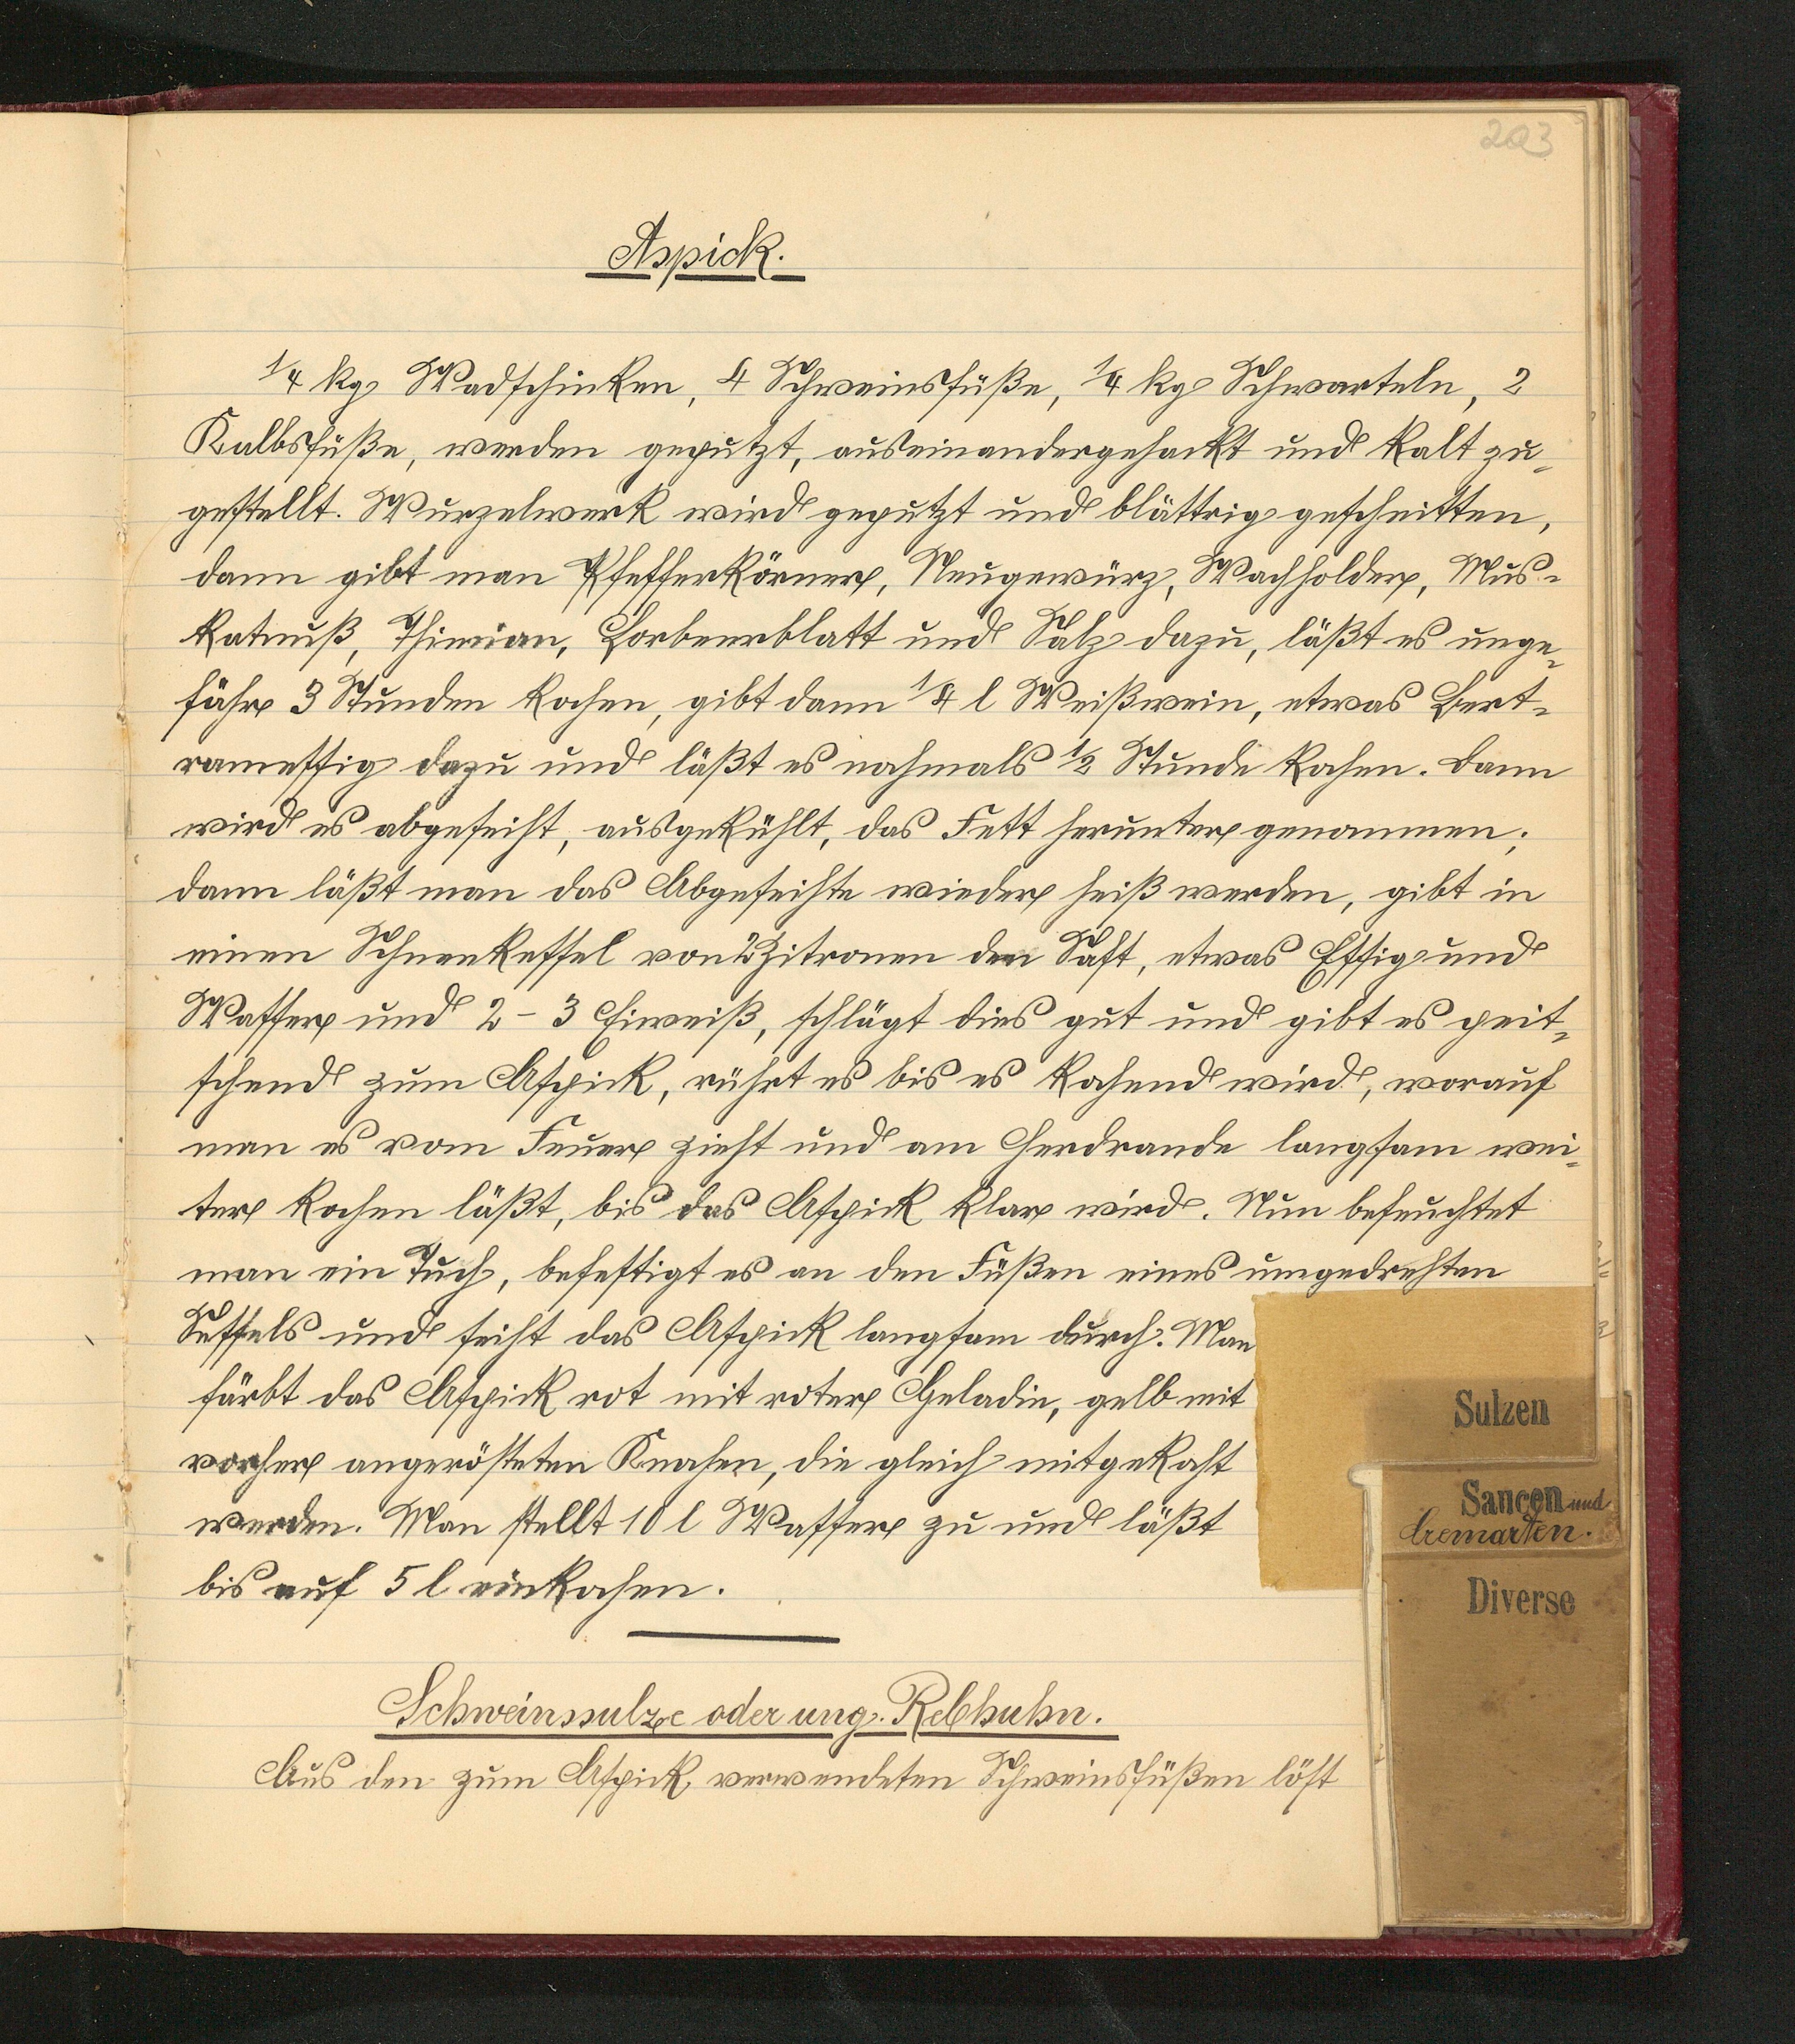 203
Aspick.
1/4 kg Wadschinken, 4 Schweinsfüße, 1/4 kg Schwarteln, 2
Kalbsfüße, werden geputzt, auseinandergehackt und kalt zu-
gestellt. Wurzelwerk wird geputzt und blättrig geschnitten,
dann gibt man Pfefferkörner, Neugewürz, Wachholder, Mus-
katnuß, Thimian, Lorbeerblatt und Salz dazu, läßt es unge-
fähr 3 Stunden kochen, gibt dann 1/4 l Weißwein, etwas Bert-
ramessig dazu und läßt es nochmals 1/2 Stunde kochen. Dann
wird es abgeseiht, ausgekühlt, das Fett herunter genommen;
dann läßt man das Abgeseihte wieder heiß werden, gibt in
einen Schneekessel von 2 Zitronen den Saft, etwas Essig und
Wasser und 2-3 Eiweiß, schlägt dies gut und gibt es peit-
schend zum Aspick, rührt es bis es kochend wird, worauf
man es vom Feuer zieht und am Herdrande langsam wei-
ter kochen läßt, bis das Aspick klar wird. Nun befeuchtet
man ein Tuch, befestigt es an den Füßen eines umgedrehten
Sessels und seiht das Aspick langsam durch. Man
färbt das Aspick rot mit roter Geladin, gelb mit
vorher angerösteten Knochen, die gleich mitgekocht
werden. Man stellt 10 l Wasser zu und läßt
bis auf 5 l einkochen.
Schweinssulze oder ung. Rebhuhn.
Aus den zum Aspick verwendeten Schweinsfüßen löst
Sulzen
Saucen und
Cremarten.
Diverse